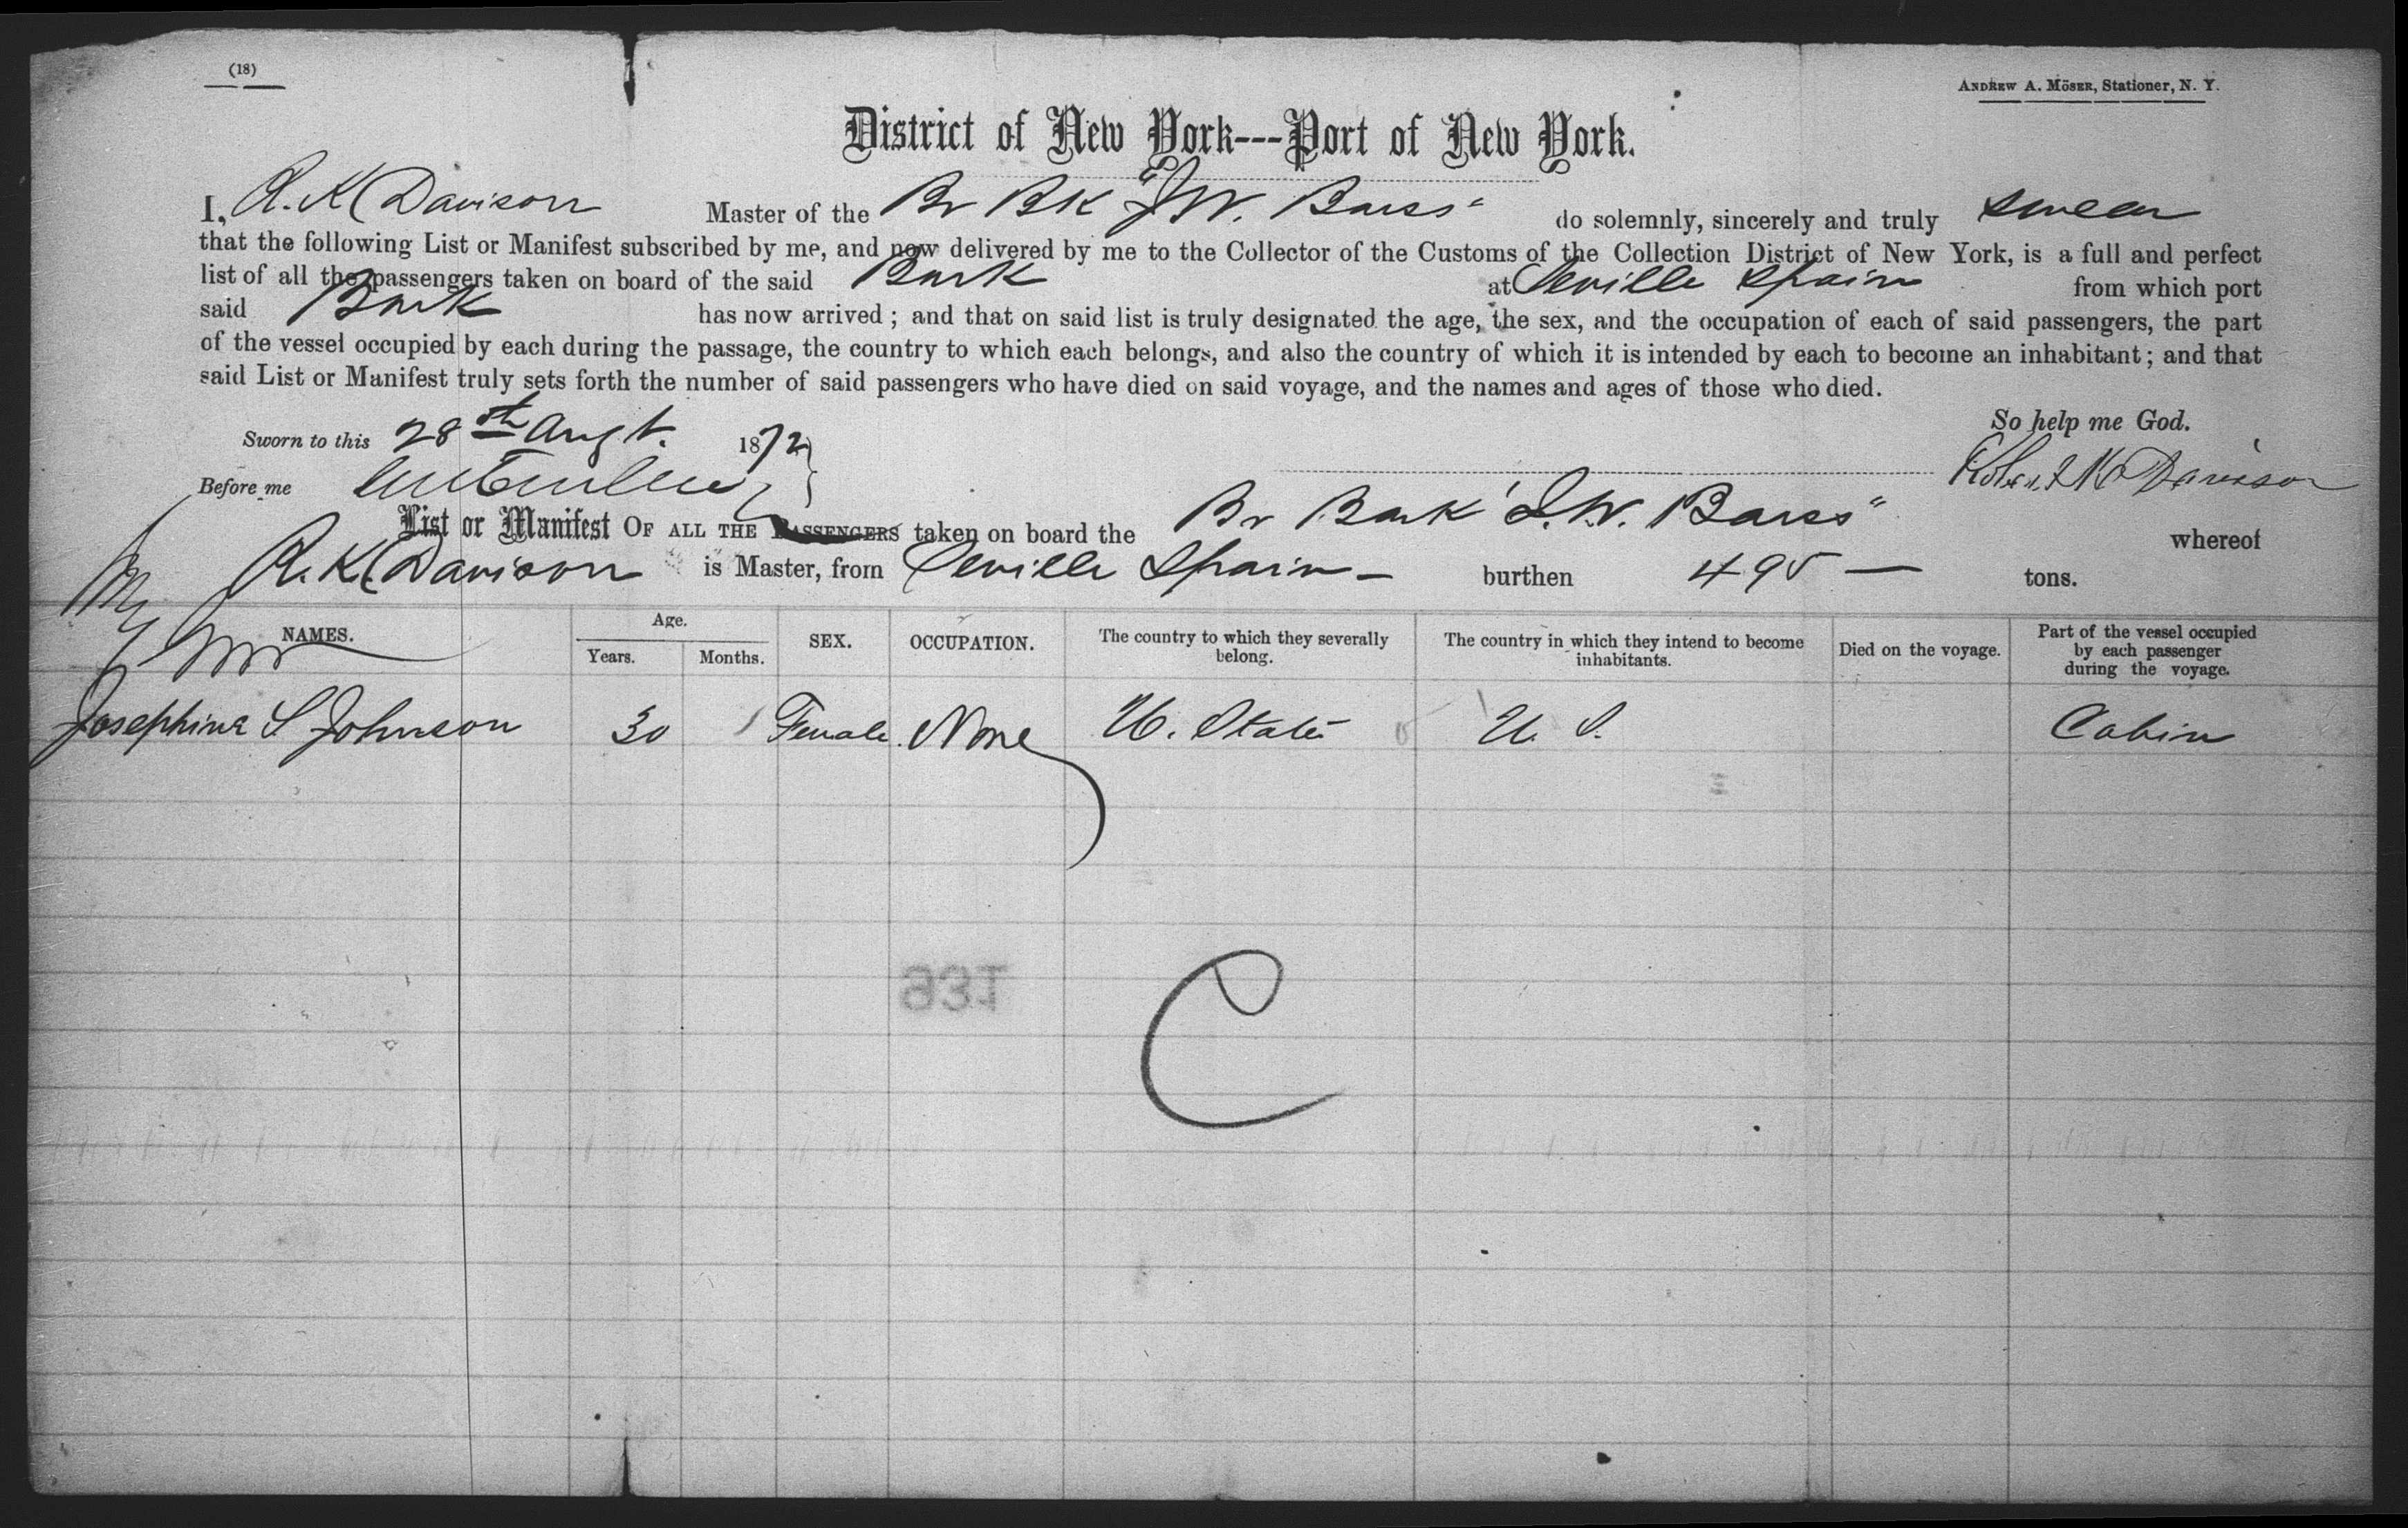 (18)
ANDREW A. MÖSER, Stationer, N. Y.
District of New York---Port of New York.
I, R. K. Davison Master of the Br BK "J W. Barss" do solemnly, sincerely and truly swear
that the following List or Manifest subscribed by me, and now delivered by me to the Collector of the Customs of the Collection District of New York, is a full and perfect
list of all the passengers taken on board of the said Bark at Seville Spain from which port
said Bark has now arrived; and that on said list is truly designated the age, the sex, and the occupation of each of said passengers, the part
of the vessel occupied by each during the passage, the country to which each belongs, and also the country of which it is intended by each to become an inhabitant; and that
said List or Manifest truly sets forth the number of said passengers who have died on said voyage, and the names and ages of those who died.
So help me God.
Sworn to this 28th Augt. 1872
Robert K Davison
Before me
List or Manifest OF ALL THE PASSENGERS taken on board the Br Bark "J. W. Barss" whereof
R. K. Davison is Master, from Seville Spain - burthen 495 - tons.
NAMES. Age. Years. Months. SEX. OCCUPATION. The country to which they severally belong. The country in which they intend to become inhabitants. Died on the voyage. Part of the vessel occupied by each passenger during the voyage.
Josephine S Johnson 30 Female None U. States U. S. Cabin
931
C